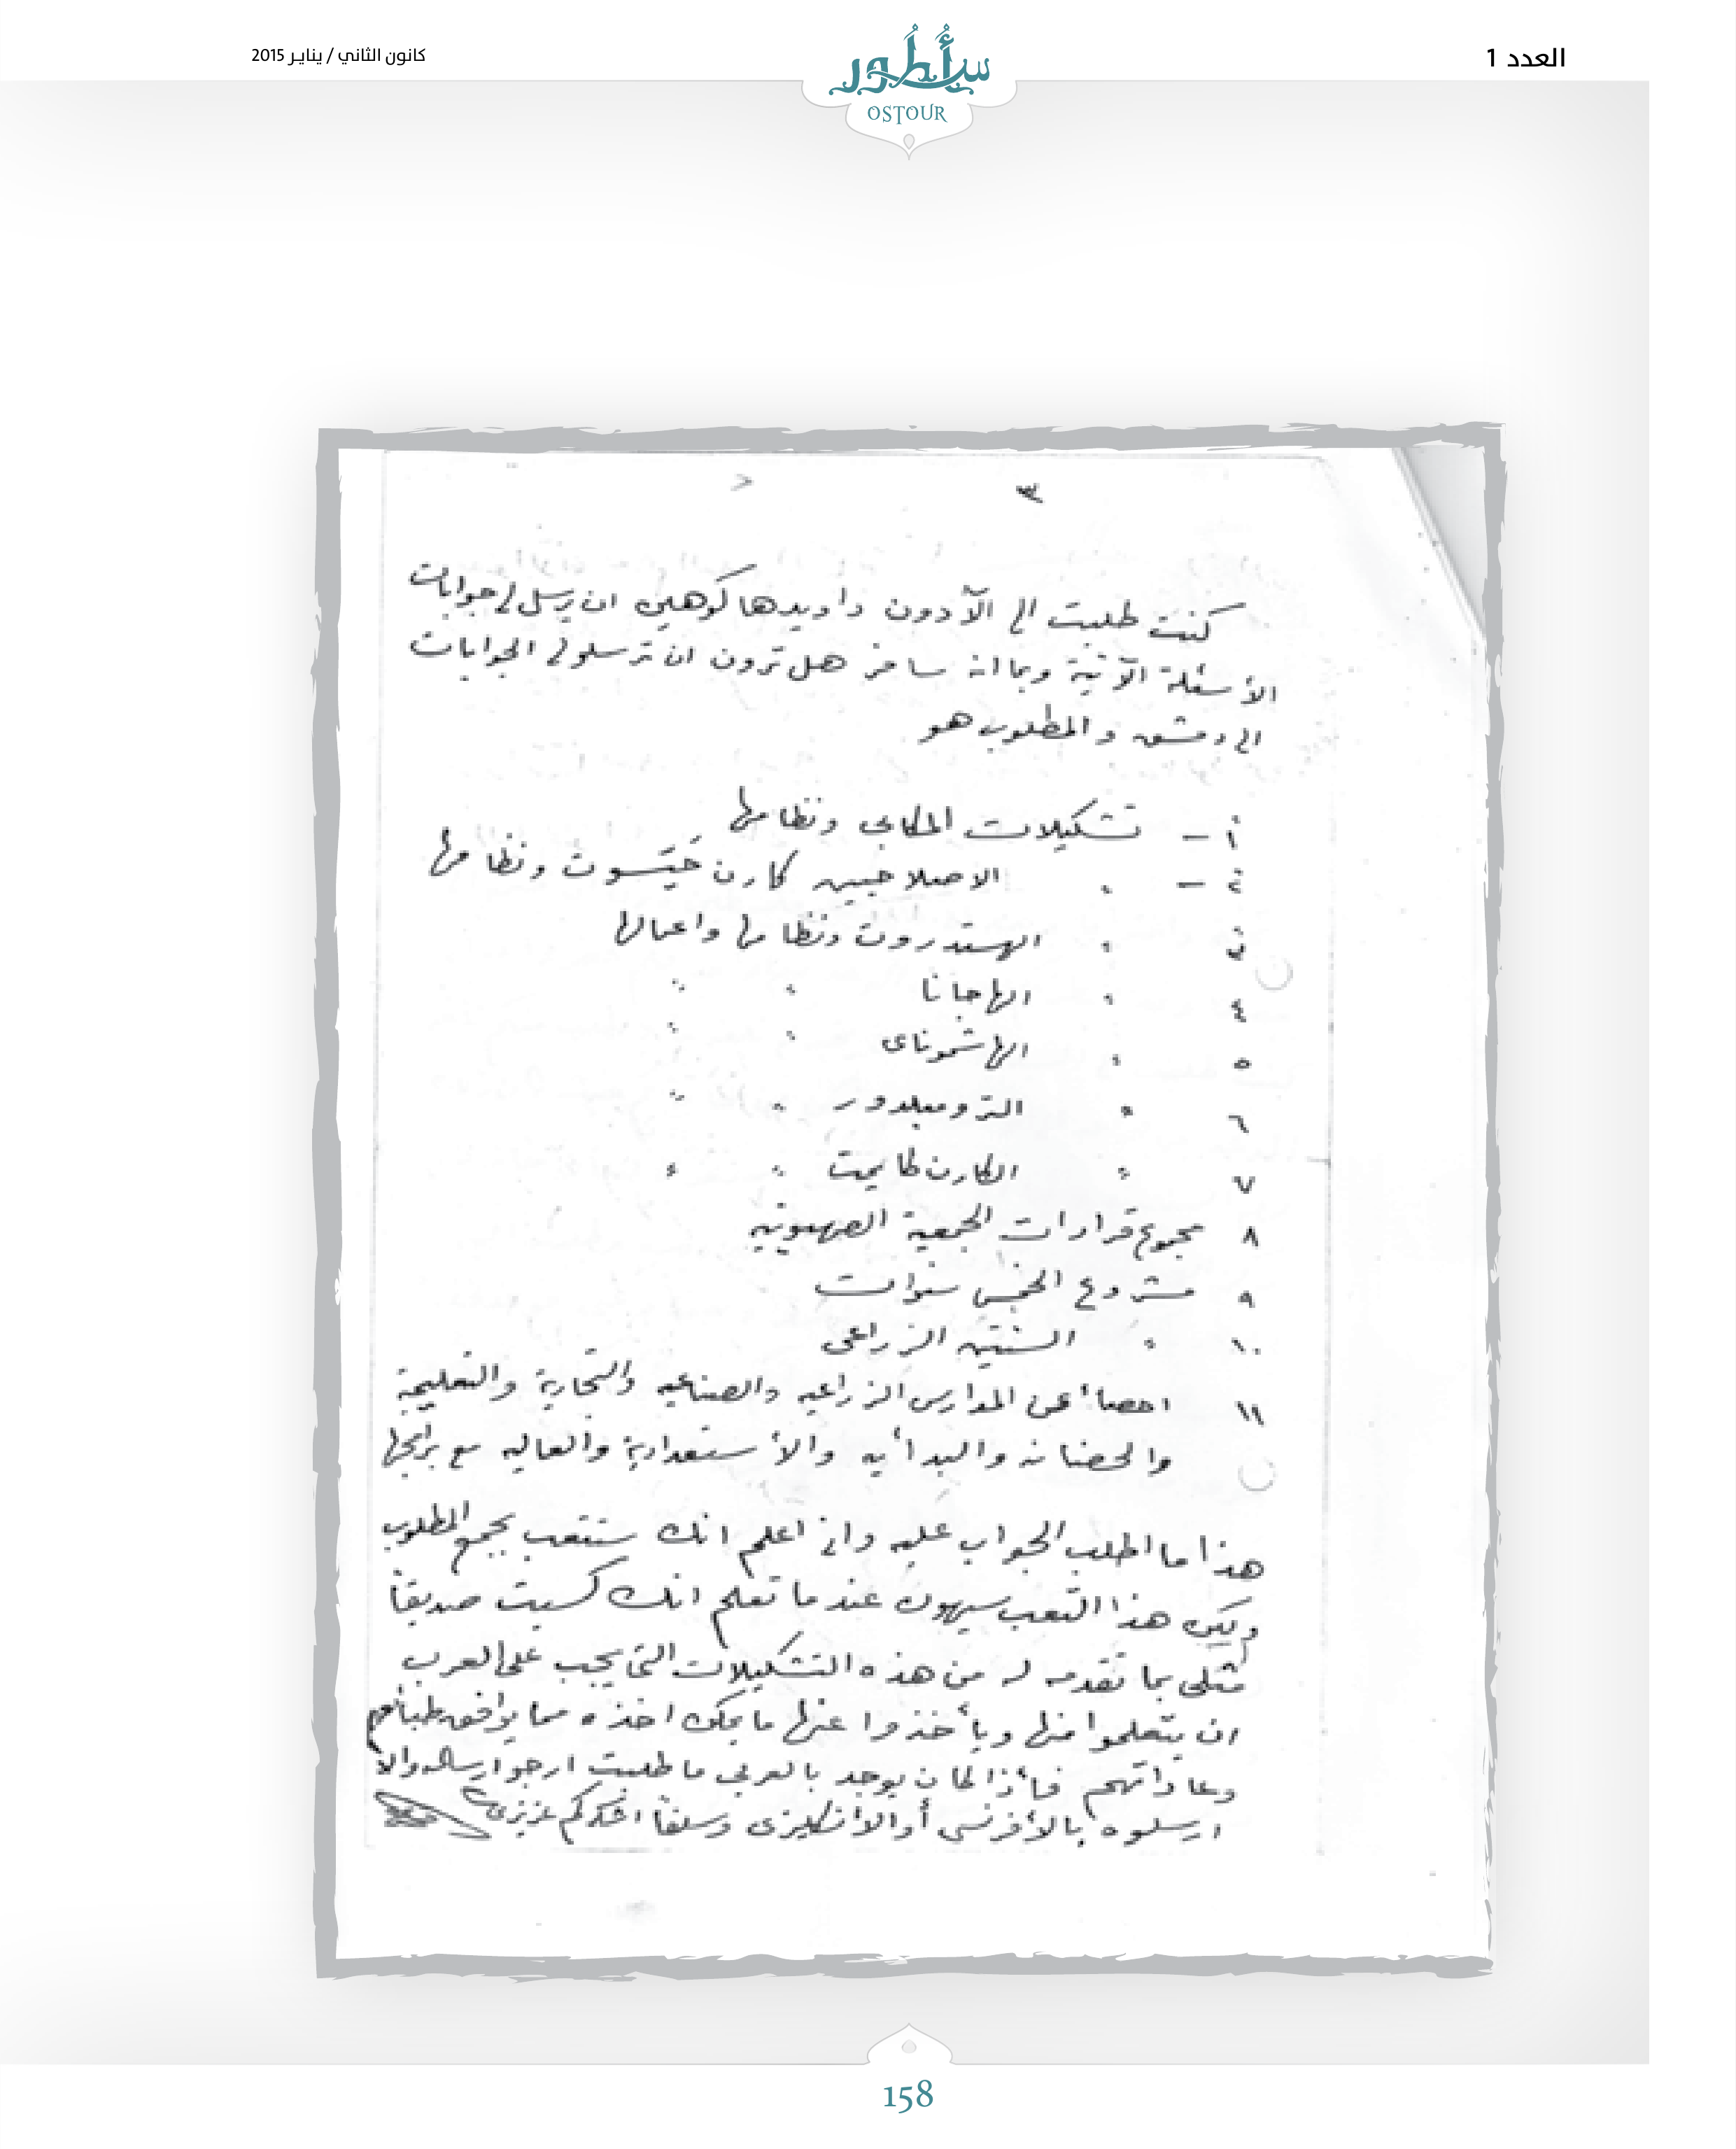 العدد 1
أسطور
OSTOUR
كانون الثاني / يناير 2015
٣
كنت طلبت الى الآدون داويدها كوهين ان يرسل لي جوابات
الأسئلة الآتية وبما انه سافر هل ترون ان ترسلو لي الجوابات
الى دمشق والمطلوب هو
١ — تشكيلات المكابي ونظامها
٢ — " الاصلاحيين كارن ونظامها
٣ " الهستدروت ونظامها واعمالها
٤ " الهاجانا " "
٥ " الهاشموناى " "
٦ " الترومبلدور " "
٧ " الكارن كايمت " "
٨ مجموع قرارات الجمعية الصهيونيه
٩ مشروع الخمس سنوات
١٠ " السنتين الزراعى
١١ احصاأ عن المدارس الزراعيه والصناعيه والتجارية والتعليمية
والحضنانه والبدأيه والأستعدادية والعاليه مع برامجها
هذا ما اطلب الجواب عليه واني اعلم انك ستتعب بجمع المطلوب
ولكن هذا التعب سيهون عندما تعلم انك كسبت صديقاً
مثلى بما تقدمه له من هذه التشكيلات التي يجب على العرب
ان يتعلموا منها ويأخذوا عنها ما يمكن اخذه مما يوافق طبائعهم
وعاداتهم فأذا كان يوجد بالعربي ما طلبت ارجو ارساله والا
ارسلوه بالأفرنسي أو الأنكليزى وسلفاً اشكركم عزيزى
158